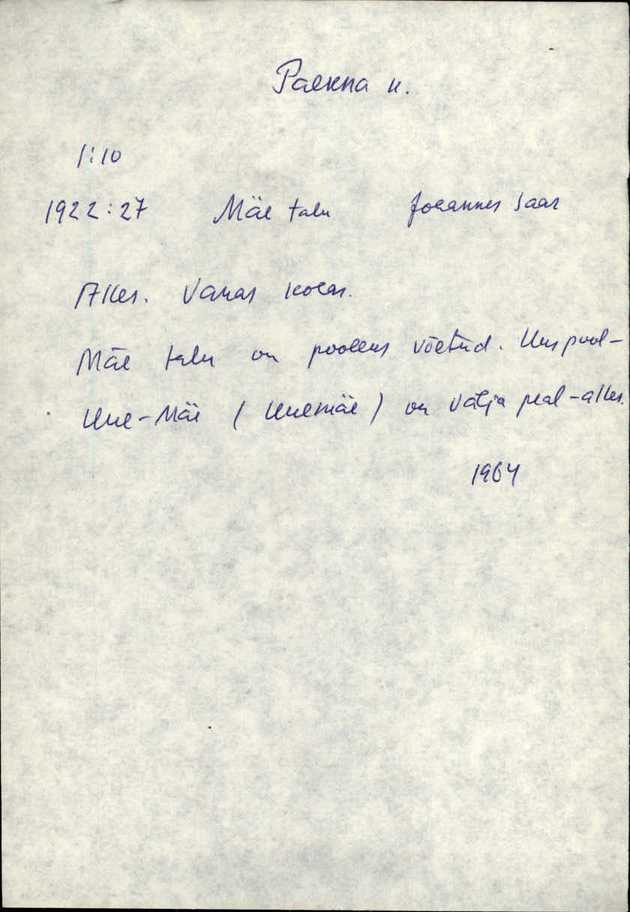 Paekna k.
1:10
1922:27 Mäe talu Joannes Saar
Alles. Vanas kohas.
Mäe talu on pooleks võetud. Uuspool-
Uue-Mäe (Uuemäe) on välja peal-alles.
1964